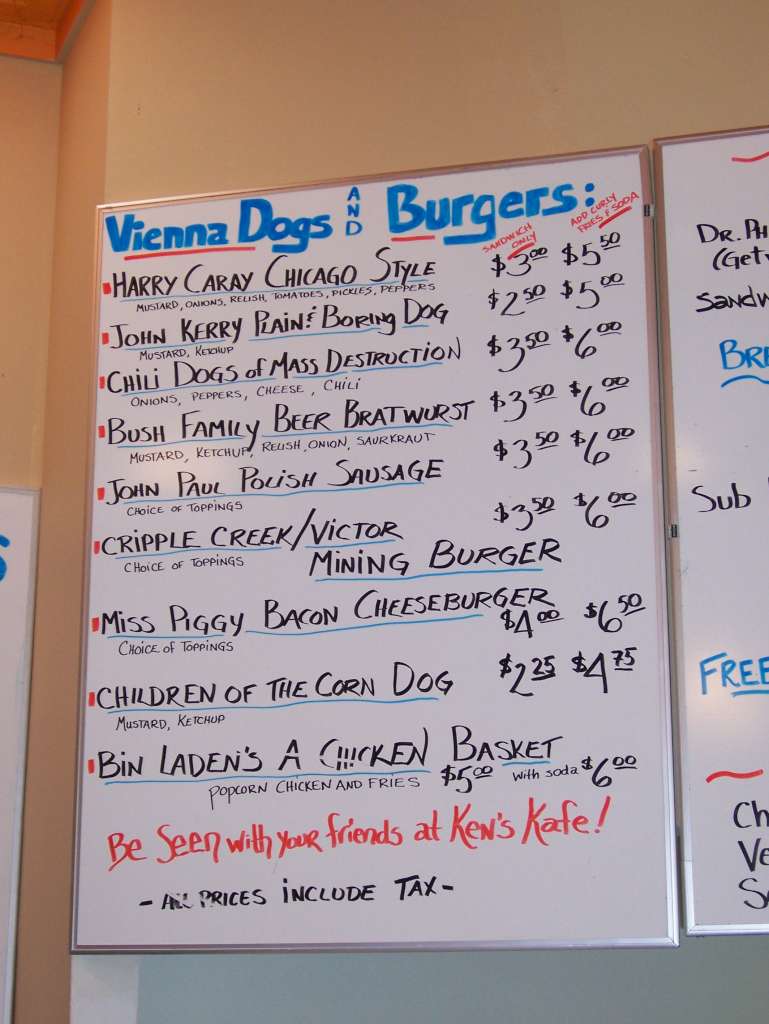 Vienna Dogs AND Burgers:
SANDWICH ONLY
ADD CURLY FRIES & SODA
HARRY CARAY CHICAGO STYLE $3.00 $5.50
MUSTARD, ONIONS, RELISH, TOMATOES, PICKLES, PEPPERS
JOHN KERRY PLAIN & BORING DOG $2.50 $5.00
MUSTARD, KETCHUP
CHILI DOGS of MASS DESTRUCTION $3.50 $6.00
ONIONS, PEPPERS, CHEESE, CHILI
BUSH FAMILY BEER BRATWURST $3.50 $6.00
MUSTARD, KETCHUP, RELISH, ONION, SAURKRAUT
JOHN PAUL POLISH SAUSAGE $3.50 $6.00
CHOICE OF TOPPINGS
CRIPPLE CREEK/VICTOR $3.50 $6.00
MINING BURGER
CHOICE OF TOPPINGS
MISS PIGGY BACON CHEESEBURGER $4.00 $6.50
CHOICE OF TOPPINGS
CHILDREN OF THE CORN DOG $2.25 $4.75
MUSTARD, KETCHUP
BIN LADEN'S A CH!CKEN BASKET
POPCORN CHICKEN AND FRIES $5.00 with soda $6.00
Be Seen with your friends at Ken's Kafe!
- ALL PRICES INCLUDE TAX -
DR. PH
(Get
Sandw
BRE
Sub
FREE
Ch
Ve
S